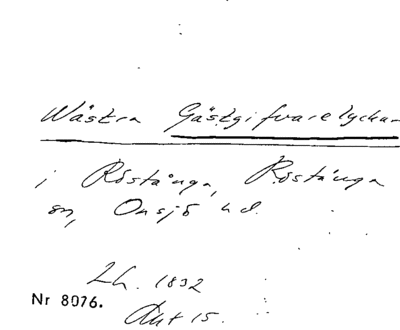 Wästra Gästgifvarelyckan
i Röstånga, Röstånga
sn, Onsjö hd.
Lh. 1832
Nr 8076.
Akt 15.